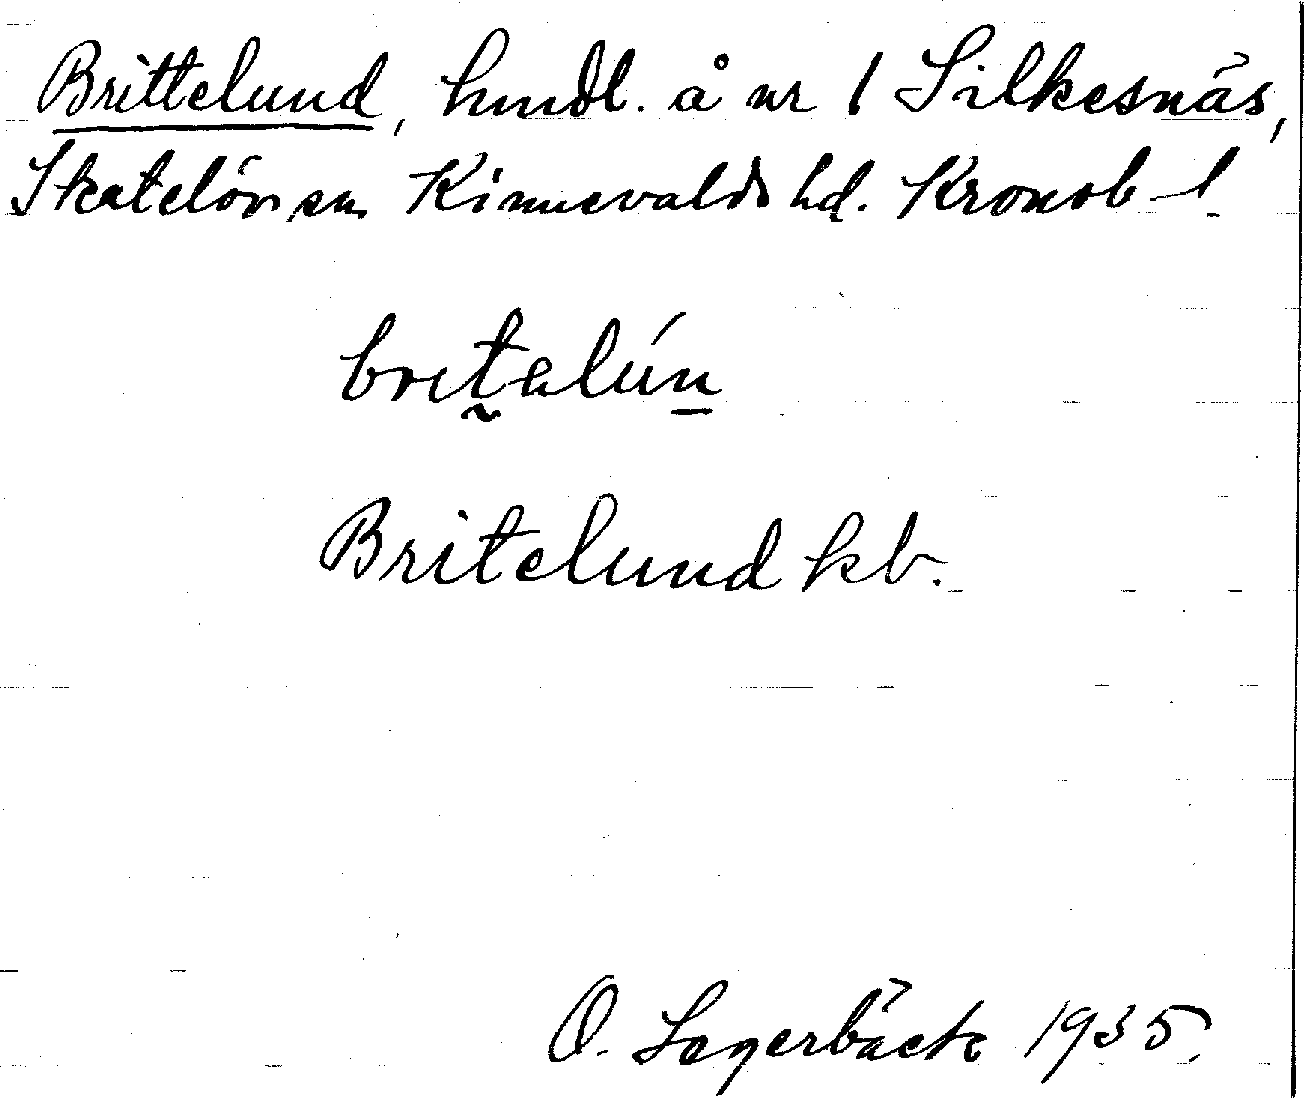 Brittelund, hmdl. å nr 1 Silkesnäs,
Skatelövs sn, Kinnevalds hd. Kronob l.
britalún
Britelund kb.
O. Lagerbäck 1935.